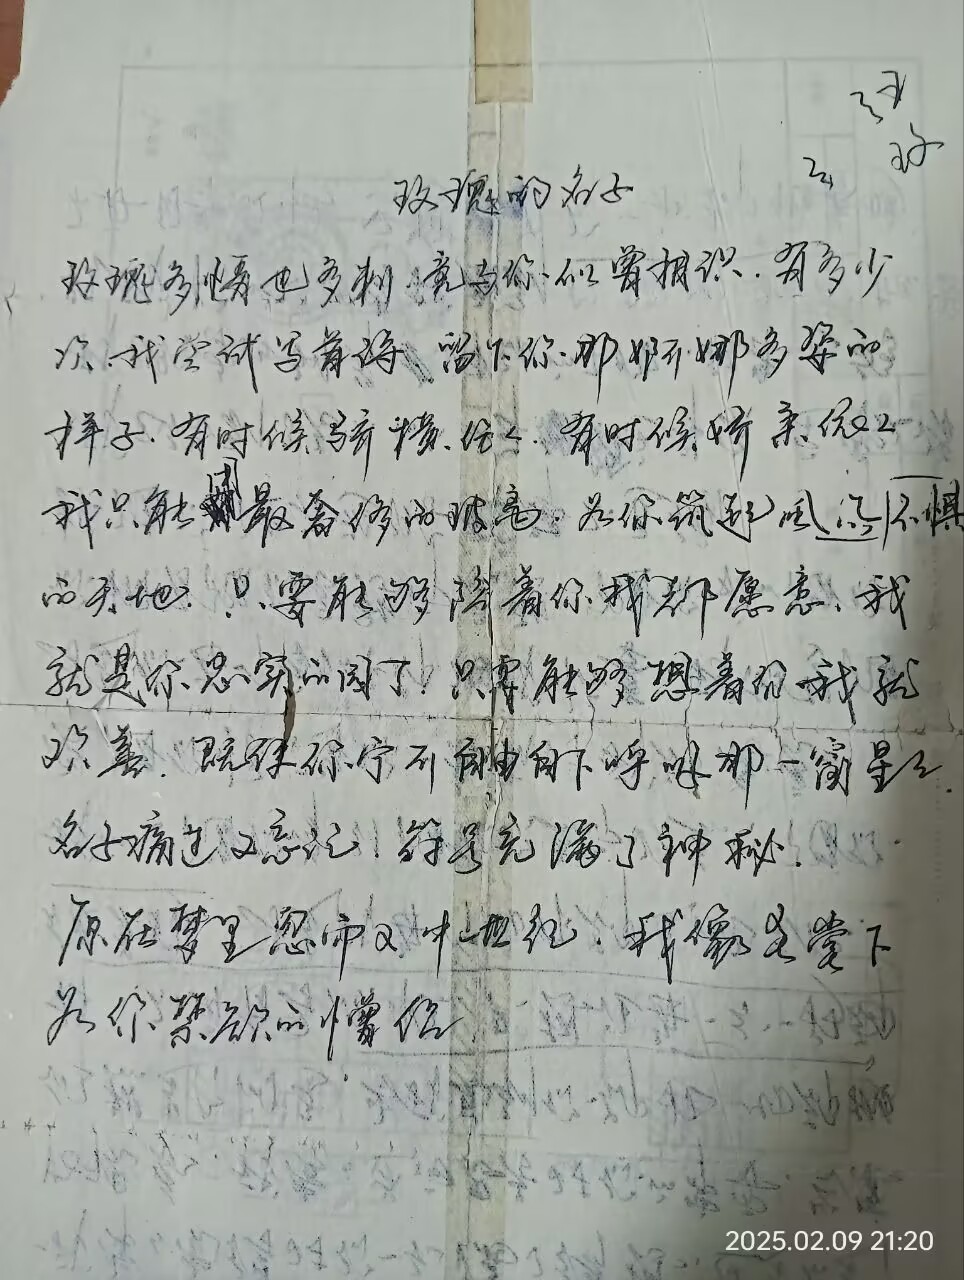 玫瑰的名子
玫瑰多情也多刺.竟与你似曾相识.有多少
次.我尝试写首诗.留下你.那婀娜多姿的
样子.有时候骄横.任性.有时候娇柔.
我只能用最奢侈的玻璃.为你筑起风
的天地.只要能够陪着你我都愿意.我
就是你忠实的园丁.只要能够想着你.我就
欢喜.
名子痛过又忘记.符号充满了神秘.
原在梦里忽而又中世纪.我像圣堂下
为你禁欲的僧侣
2025.02.09 21:20